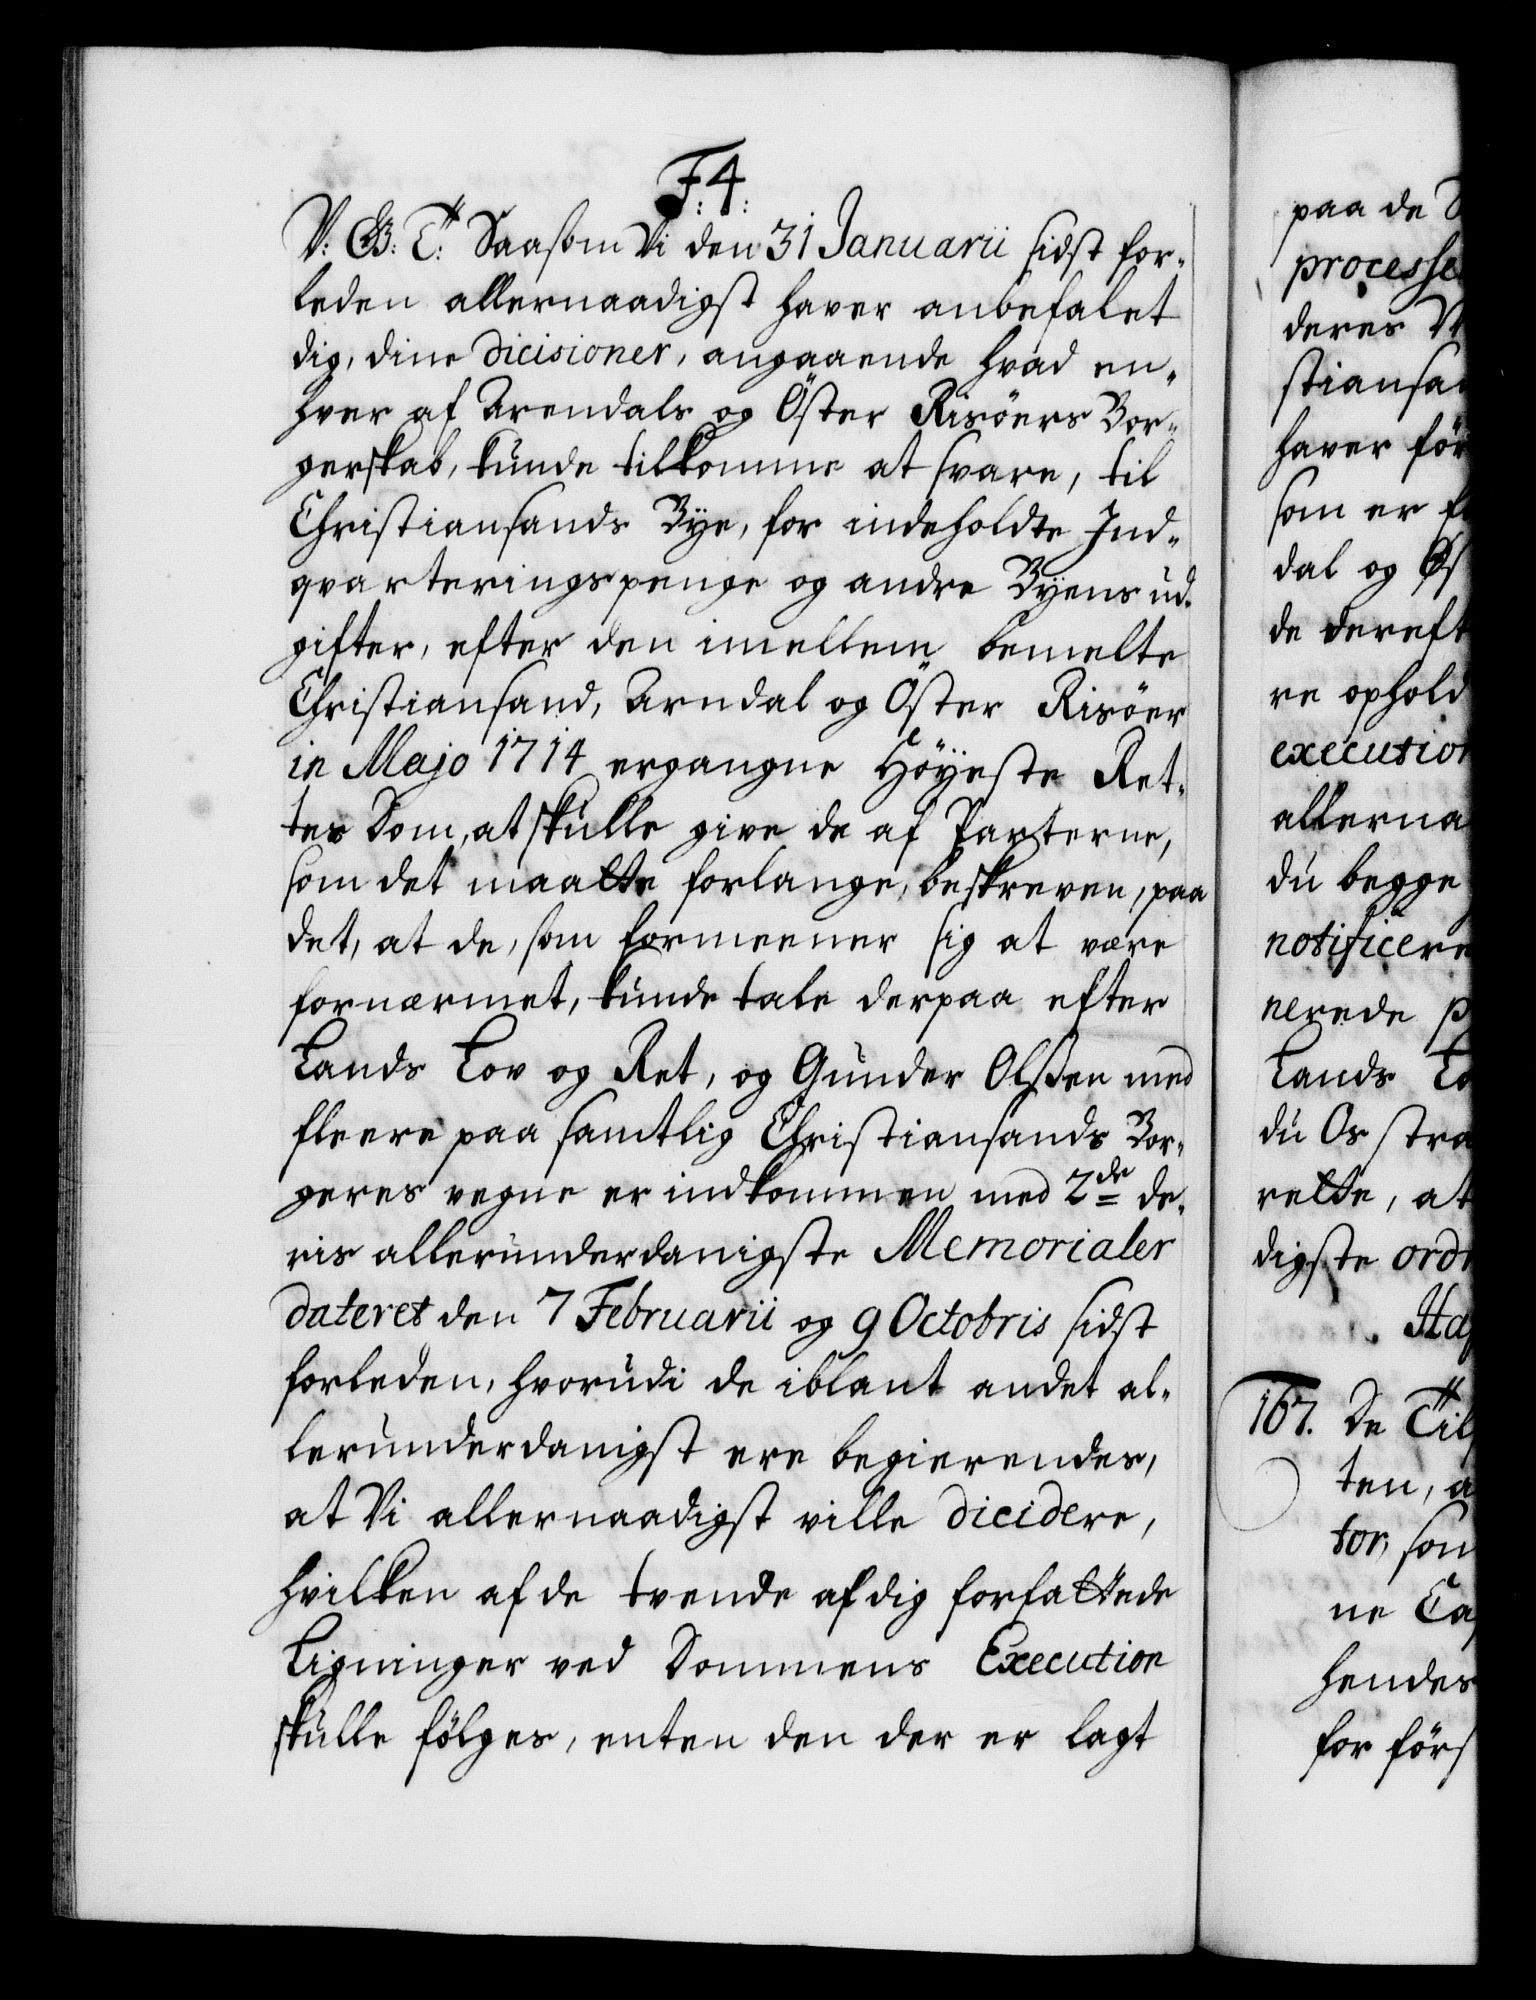 F: 4.
V: G: T: Saasom Vi den 31 Januarii sidst for-
leden allernaadigst haver anbefalet
dig, dine dicisioner, angaaende hvad en-
hver af Arendals og Öster Risöers Bor-
gerskab, kunde tilkomme at svare, til
Christiansands Bye, for indeholdte Ind-
qvarteringspenge og andre Byens ud-
gifter, efter den imellem bemelte
Christiansand, Arndal og Öster Risöer
in Majo 1714 ergangne Höyeste Ret-
tes Dom, at skulle give de af Parterne,
som det maatte forlange, beskreven, paa
det, at de, som formeener sig at være
fornærmet, kunde tale derpaa efter
Lands Lov og Ret, og Gunder Olßen med
fleere paa samtlig Christiansands Bor-
geres vegne er indkommen med 2de de-
ris allerunderdanigste Memorialer
dateret den 7 Februarii og 9 Octobris sidst
forleden, hvorudi de iblant andet al-
lerunderdanigst ere begierendes,
at Vi allernaadigst ville dicidere,
hvilken af de tvende af dig forfattede
Ligninger ved Dommens Execution
skulle fölges, enten den der er lagt
paa de
processe
deres
stiansa
haver för
som er
dal og
de dereft
re ophold
execution
allerna
du begge
notificere
nerede
Lands
du Os stra
rette, at
digste ord
167. De Til
ten, a
tor, som
ne Ca
hendes
for förs